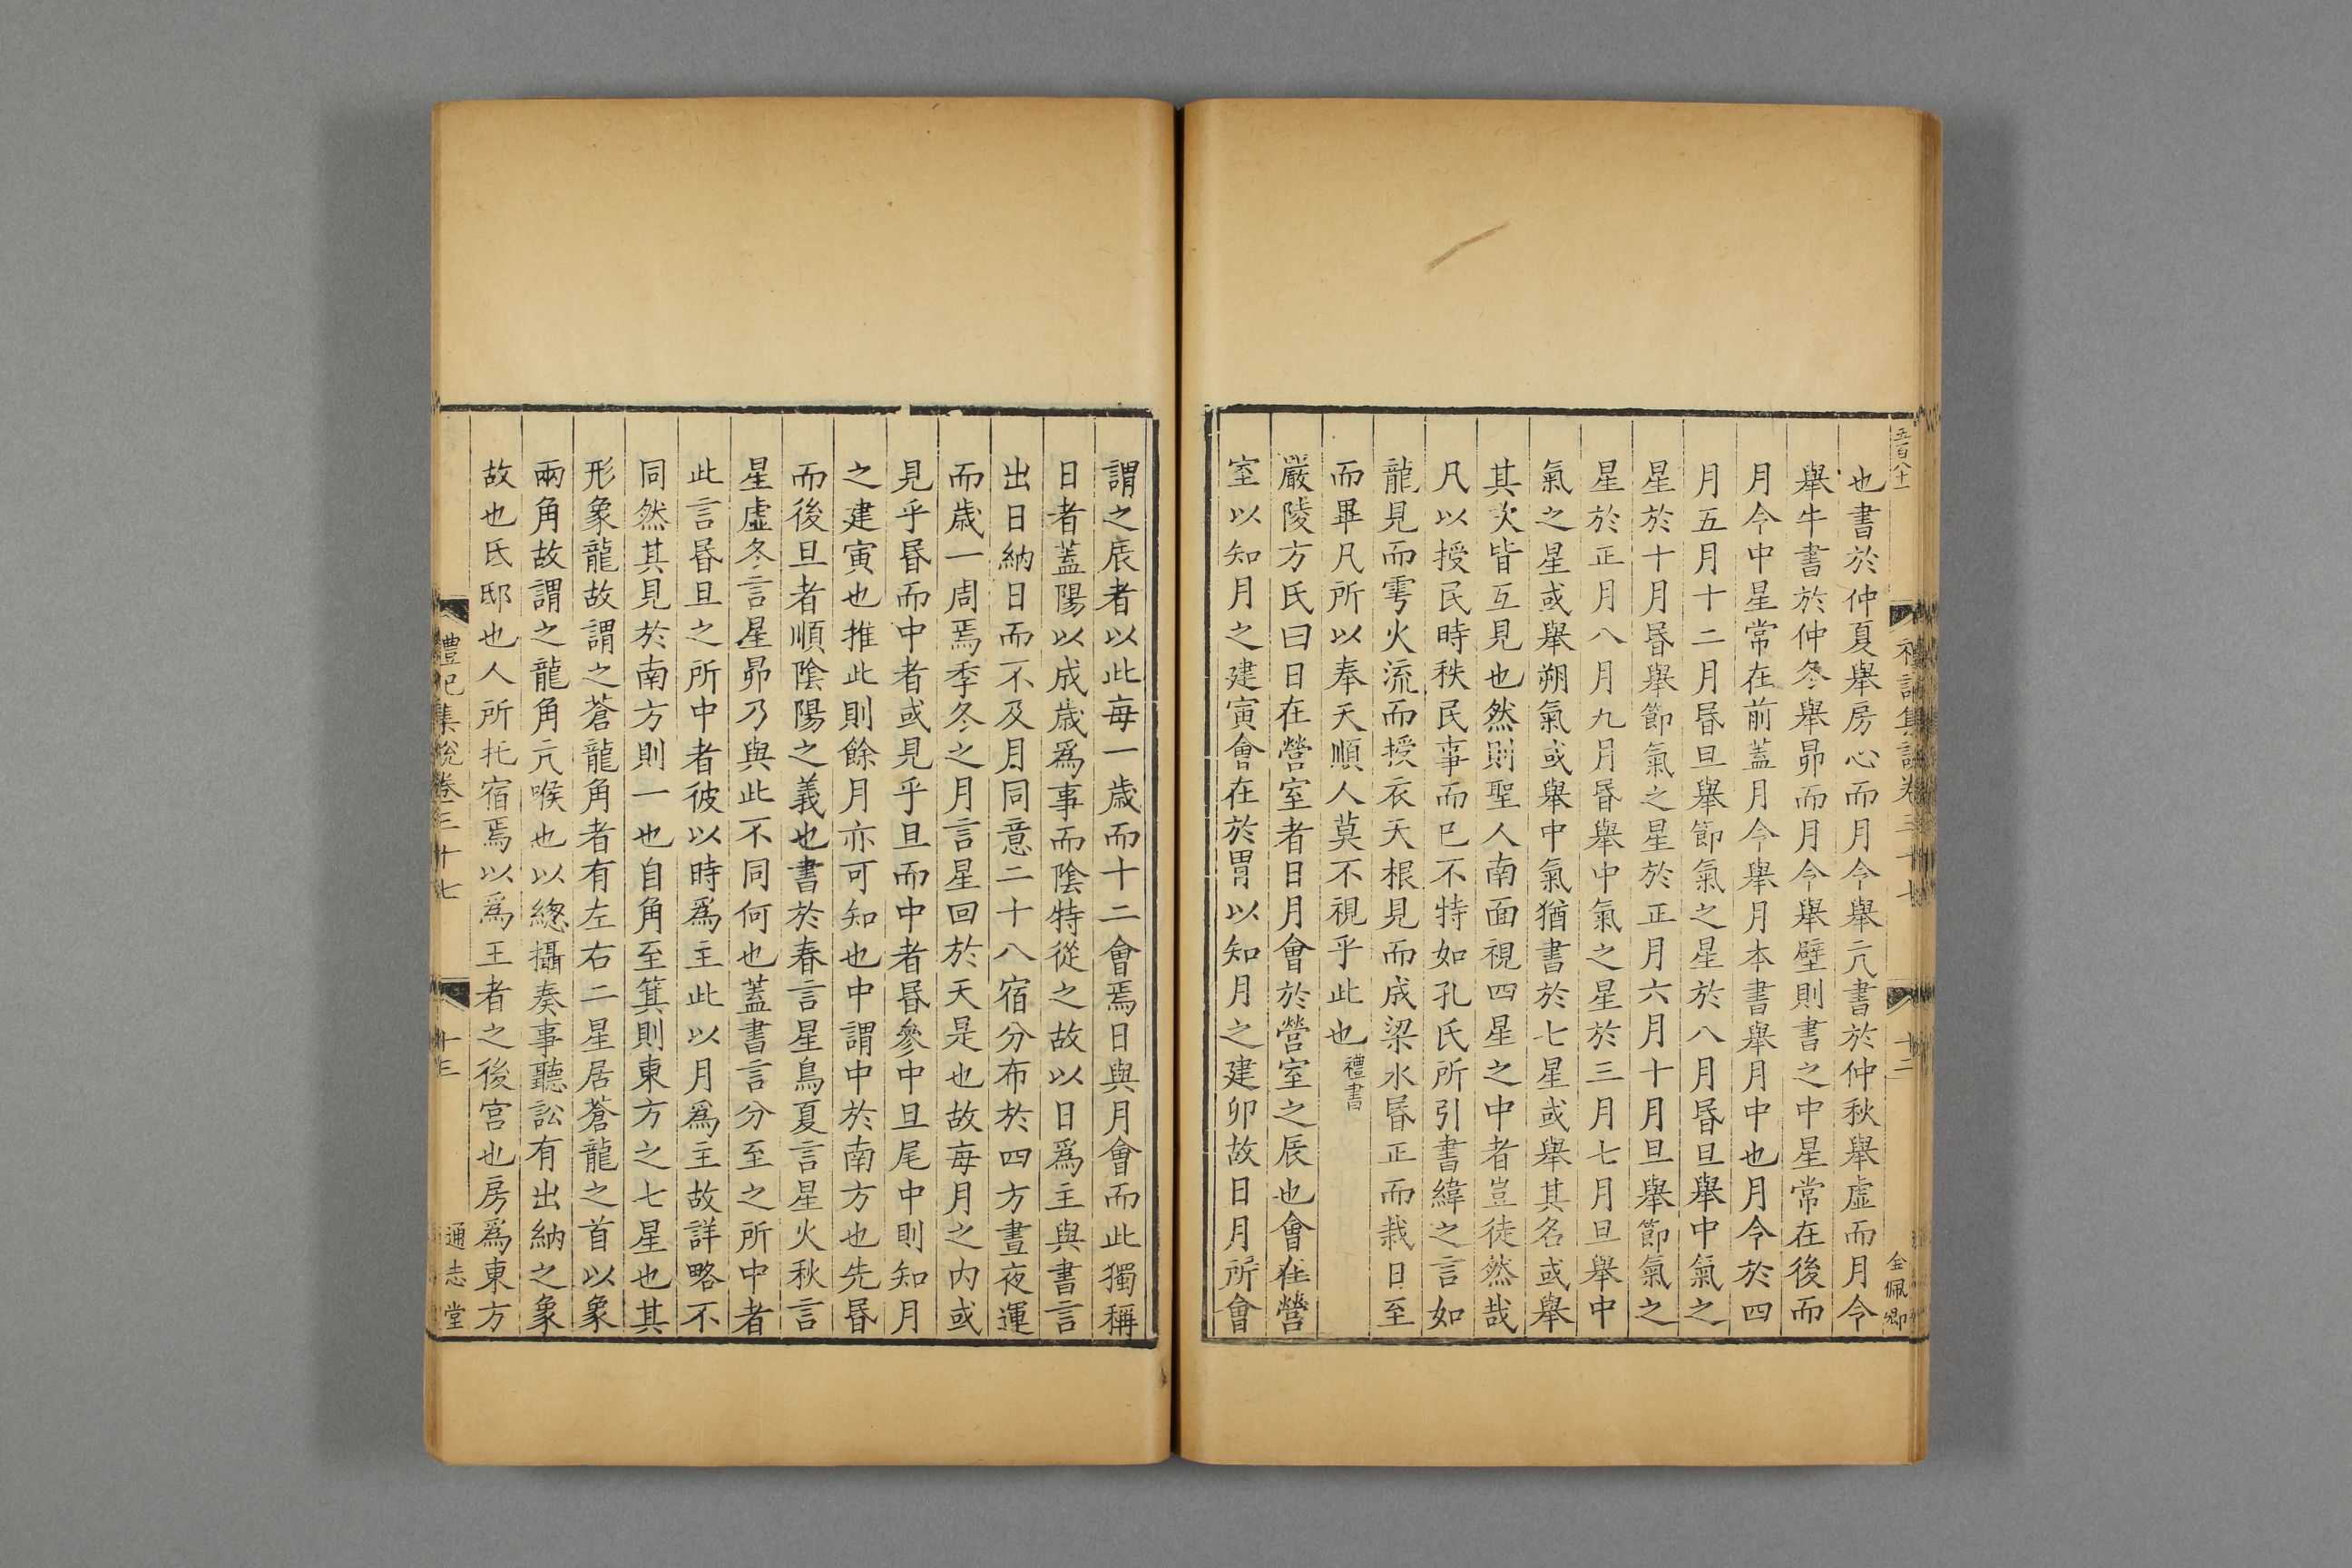 五百八十一
禮記集說卷三十七
十二
金佩卿
也書於仲夏舉房心而月令舉亢書於仲秋舉虛而月令
舉牛書於仲冬舉昴而月令舉壁則書之中星常在後而
月令中星常在前蓋月令舉月本書舉月中也月令於四
月五月十二月昬旦舉節氣之星於八月昬旦舉中氣之
星於十月昬舉節氣之星於正月六月十月旦舉節氣之
星於正月八月九月昬舉中氣之星於三月七月旦舉中
氣之星或舉朔氣或舉中氣猶書於七星或舉其名或舉
其次皆互見也然則聖人南面視四星之中者豈徒然哉
凡以授民時秩民事而已不特如孔氏所引書緯之言如
龍見而雩火流而授衣天根見而成梁水昬正而栽日至
而畢凡所以奉天順人莫不視乎此也禮書
嚴陵方氏曰日在營室者日月會於營室之辰也會在營
室以知月之建寅會在於胃以知月之建卯故日月所會
謂之辰者以此每一歲而十二會焉日與月會而此獨稱
日者蓋陽以成歲爲事而陰特從之故以日爲主與書言
出日納日而不及月同意二十八宿分布於四方晝夜運
而歲一周焉季冬之月言星回於天是也故每月之內或
見乎昬而中者或見乎旦而中者昬參中旦尾中則知月
之建寅也推此則餘月亦可知也中謂中於南方也先昬
而後旦者順陰陽之義也書於春言星鳥夏言星火秋言
星虛冬言星昴乃與此不同何也蓋書言分至之所中者
此言昬旦之所中者彼以時爲主此以月爲主故詳略不
同然其見於南方則一也自角至箕則東方之七星也其
形象龍故謂之蒼龍角者有左右二星居蒼龍之首以象
兩角故謂之龍角亢喉也以緫攝奏事聽訟有出納之象
故也氐邸也人所托宿焉以爲王者之後宫也房爲東方
禮記集說卷三十七
十三
通志堂